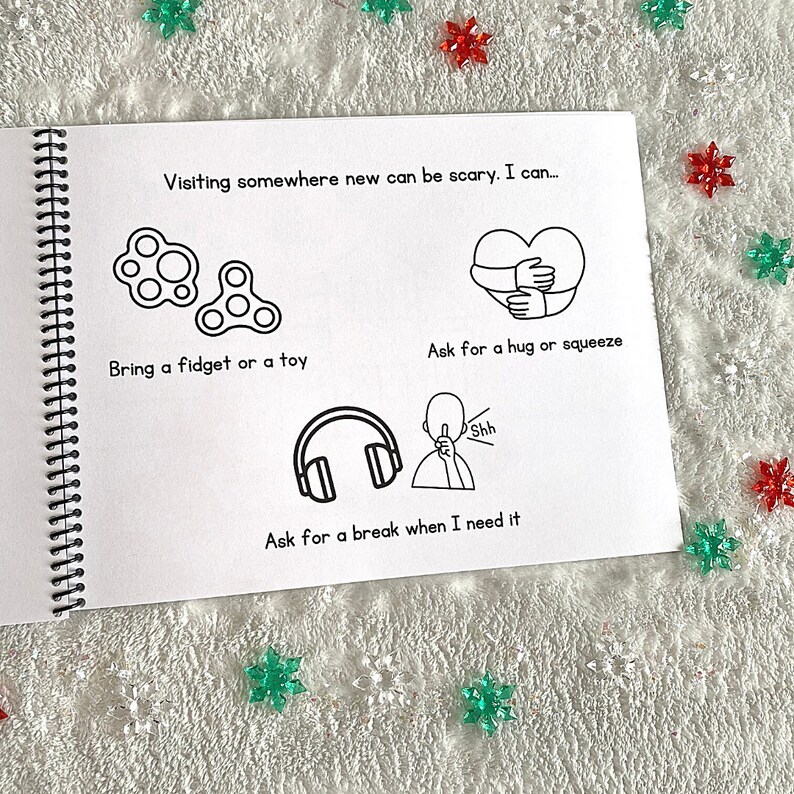 Visiting somewhere new can be scary. I can...
Bring a fidget or a toy
Ask for a hug or squeeze
Shh
Ask for a break when I need it